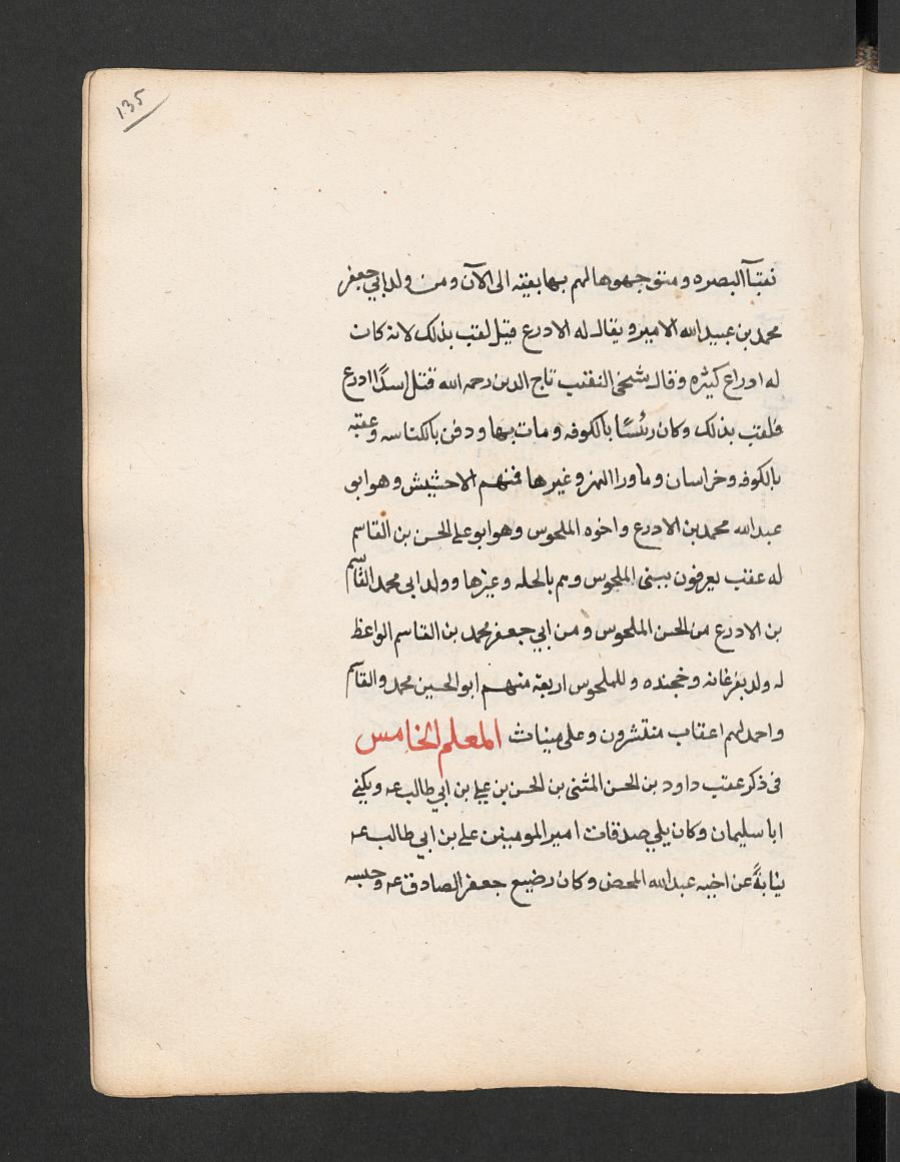 135
نقبآ البصره ومتوجهوها لهم بها بقيه الى الآن ومن ولد ابي جعفر
محمد بن عبيد الله الامير ويقال له الادرع قيل لقب بذلك لانه كان
له ادراع كثيره وقال شيخي النقيب تاج الدين رحمه الله قتل اسدًا ادرع
فلقب بذلك وكان رئيسًا بالكوفه ومات بها ودفن بالكناسه وعقبه
بالكوفه وخراسان وماورا النهر وغيرها فمنهم الاحشيش وهو ابو
عبد الله محمد بن الادرع واخوه الملحوس وهو ابو علي الحسن بن القاسم
له عقب يعرفون ببنى الملحوس وهم بالحله وغيرها وولد ابى محمد القاسم
بن الادرع من الحسن الملحوس ومن ابي جعفر محمد بن القاسم الواعظ
له ولد بفرغانه وخجنده وللملحوس اربعة منهم ابو الحسين محمد والقاسم
واحمد لهم اعقاب منتشرون وعلى ميناث المعلم الخامس
فى ذكر عقب داود بن الحسن المثنى بن الحسن بن علي بن ابي طالب عه ويكنى
ابا سليمان وكان يلي صدقات امير المومنين علي بن ابي طالب عه
نيابةً عن اخيه عبد الله المحض وكان رضيع جعفر الصادق عه وحبسه